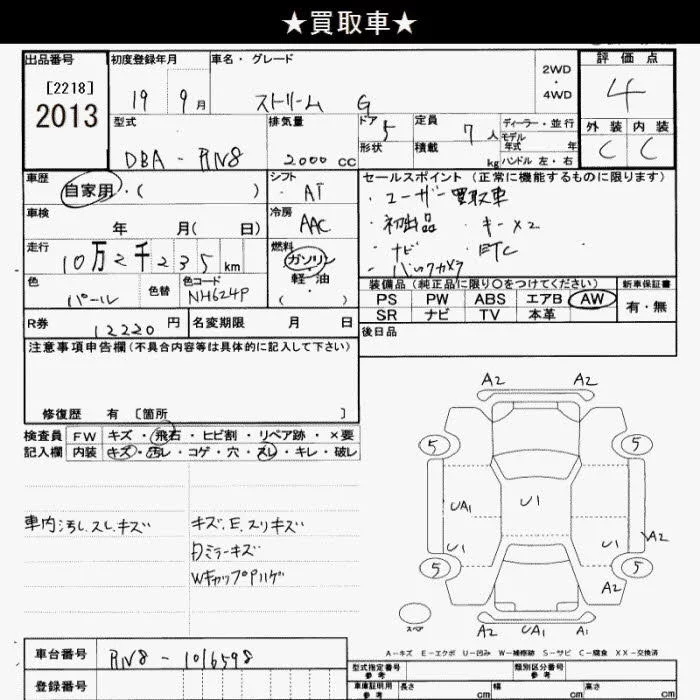 ★買取車★
出品番号
[2218]
2013
初度登録年月
19 9月
車名・グレード
ストリーム G
2WD
・
4WD
評価点
4
外装 内装
C C
型式
DBA-RN8
排気量
2000cc
ドア 5
形状
定員 7人
積載 kg
ディーラー・並行
モデル
年式 年
ハンドル 左・右
車歴
自家用・( )
シフト
・AT
車検
年 月(日)
冷房
AAC
走行
10万2千235km
燃料
ガソリン
・
軽油
( )
色
パール
色替
色コード
NH624P
セールスポイント(正常に機能するものに限ります)
・ユーザー買取車
・初出品 ・キーx2
・ナビ ・ETC
・バックカメラ
装備品(純正品に限り〇をつけてください)
新車保証書
PS PW ABS エアB AW
有・無
SR ナビ TV 本革
R券 12220円
名変期限 月 日
後日品
注意事項申告欄(不具合内容等は具体的に記入して下さい)
修復歴 有 [箇所 ]
検査員
記入欄
FW キズ・飛石・ヒビ割・リペア跡・×要
内装 キズ・汚レ・コゲ・穴・スレ・キレ・破レ
車内汚し.スレ.キズ
キズ.E.スリキズ
Dミラーキズ
WキャップPハゲ
A2 A2
5 5
UA1 U1
U1 U1 A2
5 5
A2
スペア
A2 UA1 A1
A-キズ E-エクボ U-凹み W-補修跡 S-サビ C-腐食 XX-交換済
車台番号
RN8-1016598
登録番号
型式指定番号
参考
類別区分番号
参考
車庫証明用
参考
長さ cm
幅 cm
高さ cm